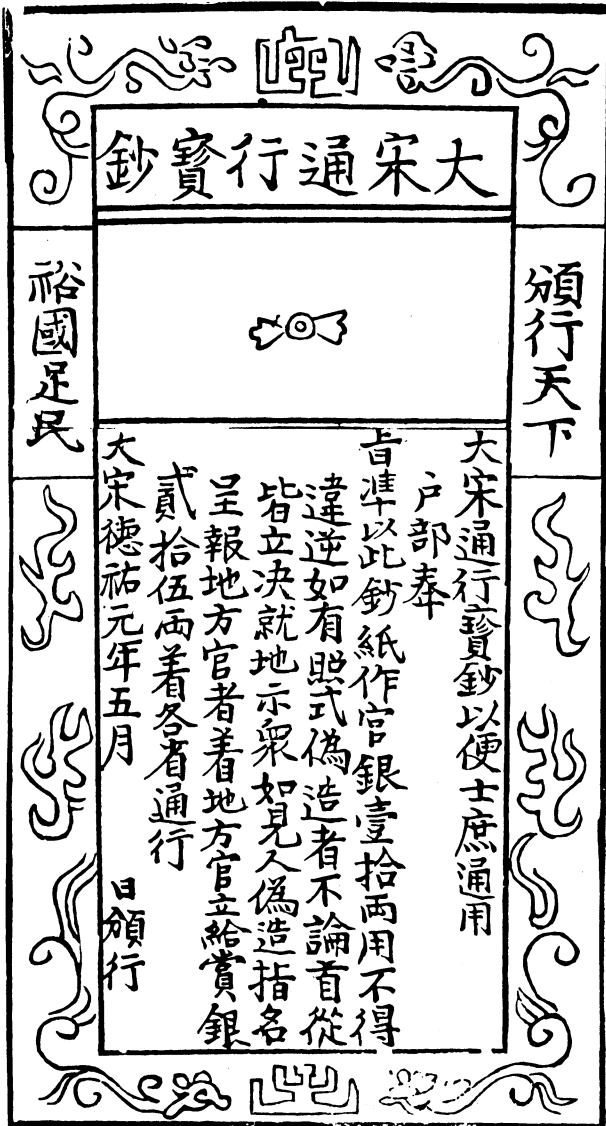 大宋通行寳鈔
頒行天下
裕國足民
大宋通行寳鈔以便士庶通用
户部奉
旨準以此鈔紙作官銀壹拾両用不得
違逆如有照式偽造者不論首從
皆立决就地示衆如見人偽造指名
呈報地方官者着地方官立給賞銀
貳拾伍両着各省通行
大宋德祐元年五月 日頒行